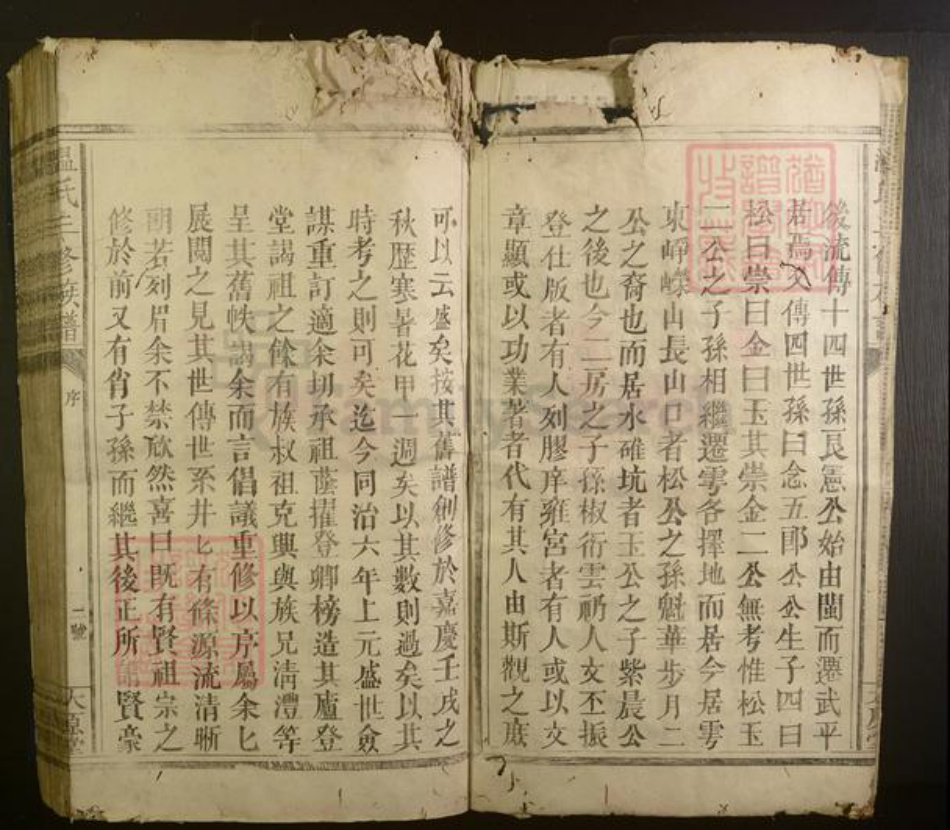 後流傳十四世孫艮憲公始由閩而遷武平
居焉又傳四世孫曰念五郎公公生子四曰
松曰崇曰金曰玉其崇金二公無考惟松玉
二公之子孫相繼遷雩各擇地而居今居雩
東崢嶸山長山口者松公之孫魁華步月二
公之裔也而居水碓坑者玉公之子紫晨公
之後也今二房之子孫椒衍雲礽人文丕振
登仕版者有人列膠庠雍宮者有人或以文
章顯或以功業著者代有其人由斯觀之蔟
可以云盛矣按其舊譜創修於嘉慶壬戌之
秋歷寒暑花甲一週矣以其數則過矣以其
時考之則可矣迄今同治六年上元盛世僉
謀重訂適余切承祖蔭擢登鄉榜造其廬登
堂謁祖之餘有族叔祖克興與族兄清灃等
呈其舊帙謁余而言倡議重修以序屬余匕
展閱之見其世傳世系井匕有條源流清晰
朗若列眉余不禁欣然喜曰既有賢祖宗之
修於前又有肖子孫而繼其後正所謂賢豪
溫氏三修族譜
序
二號
太原堂
FamilySearch